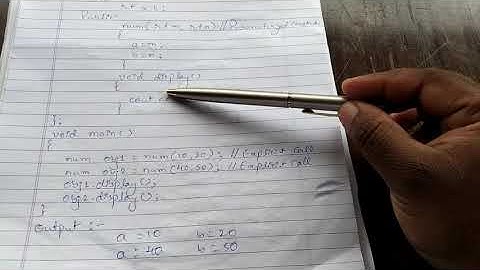 int a,b;
Public:
num(int m, int n) // Parameterized Constructor
{
a=m;
b=n;
}
void display()
{
cout
}
};
void main()
{
num obj1 = num(10,20); // Explicit Call
num obj2 = num(40,50); // Explicit Call
obj1.display();
obj2.display();
}
Output :-
a=10 b=20
a=40 b=50